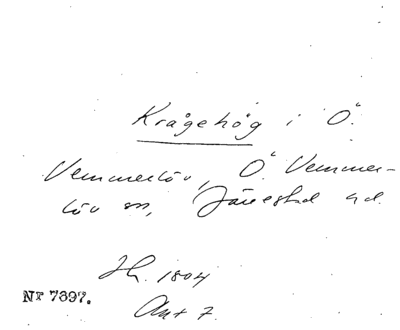 Krågehög i Ö.
Vemmerlöv, Ö. Vemmer-
löv sn, Järrestad hd.
Hl. 1804
Nr 7697.
Ant 7.